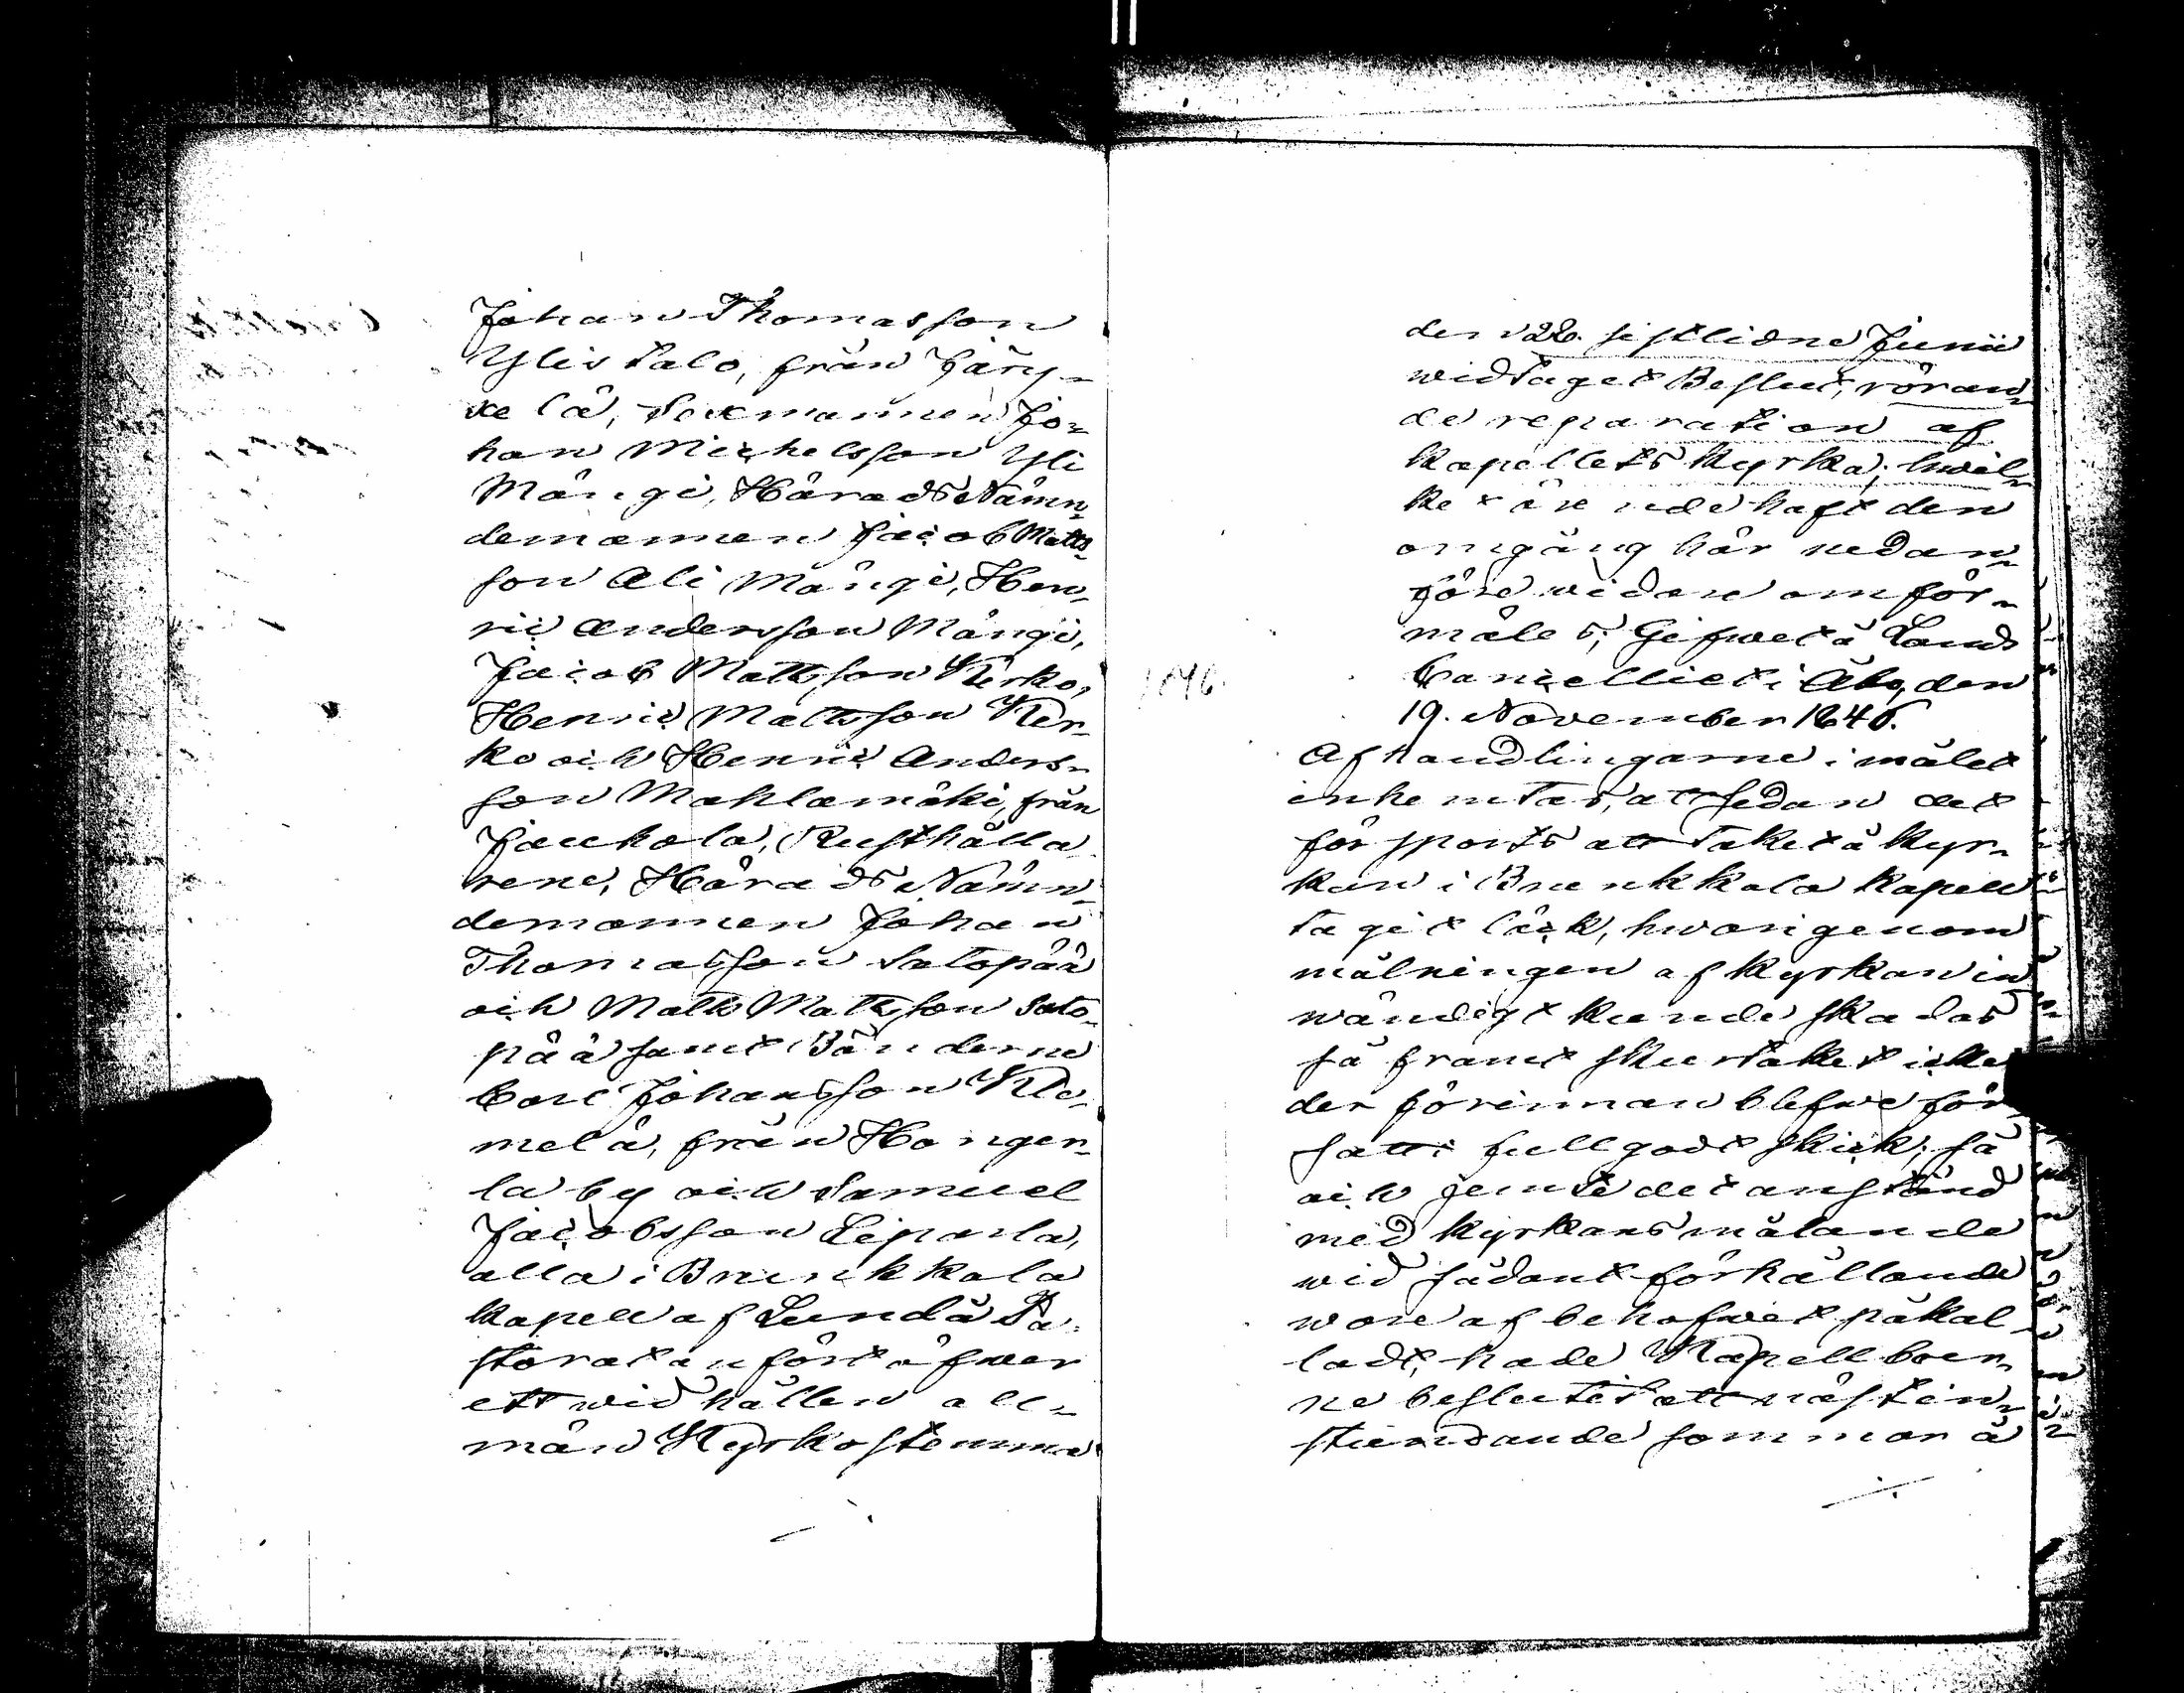 Johan Thomasson
Ylistalo, från Järy-
kelä, Sexmannen Jo-
han Michelsson Yli
Mängi, Härads Nämn-
demannen Jacob Matts-
son Ali Mängi, Hen-
ric Andersson Mängi,
Jacob Mattsson Kirko,
Henric Mattsson Kir-
ko och Henric Anders-
son Mahlamäki, från
Jauhola, Rusthålla-
rene, Härads Nämn-
demannen Johan
Thomasson Satopää
och Matts Mattsson Sato-
pää samt Bönderne
Carl Johansson Kle-
melä, från Honger-
la by och Samuel
Jacobsson Leporla,
alla i Brunkkala
kapell af Lundå Pa-
storat anfört öfwer
ett wid hållen all-
män Kyrkostemma
den 28. sistlidne Junii
widtaget Beslut, röran-
de reparation af
kapellets kyrka; hwil-
ket ärende haft den
omgång här nedan-
före widare omför-
mäles; Gifwet å Lands
Cancelliet i Åbo, den
19. November 1846.
1846.
Af handlingarne i målet
inhemtas, att sedan det
försports att taket å kyr-
kan i Brunkkala kapell
tagit läck, hwarigenom
målningen af kyrkan in-
wändigt kunde skadas
så framt skurtaket icke
der förinnan blefwe för-
satt i fullgodt skick; så
och jemte det anstånd
med kyrkans målande
wid sådant förhållande
wore af behofwet påkal-
ladt, hade Kapellboer-
ne beslutit att nästin-
stundande sommar å